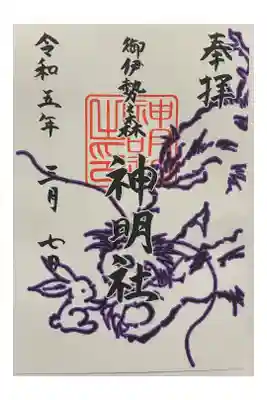 奉拝
御伊勢の森
神明社
令和五年 三月 七日